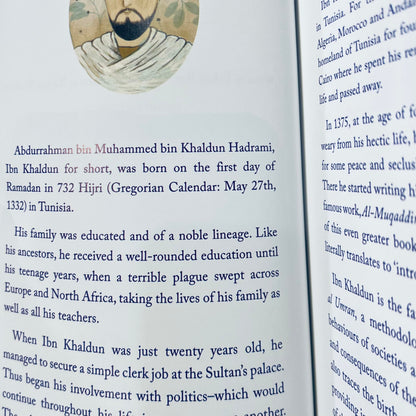 Abdurrahman bin Muhammed bin Khaldun Hadrami,
Ibn Khaldun for short, was born on the first day of
Ramadan in 732 Hijri (Gregorian Calendar: May 27th,
1332) in Tunisia.
His family was educated and of a noble lineage. Like
his ancestors, he received a well-rounded education until
his teenage years, when a terrible plague swept across
Europe and North Africa, taking the lives of his family as
well as all his teachers.
When Ibn Khaldun was just twenty years old, he
managed to secure a simple clerk job at the Sultan's palace.
Thus began his involvement with politics–which would
continue throughout his life
another
in Tunisia. For
Algeria, Morocco and Anda
homeland of Tunisia for fou
Cairo where he spent his re
life and passed away.
In 1375, at the age of fo
weary from his hectic life, h
for some peace and seclus
There he started writing hi
famous work, Al-Muqaddi
of this even greater book
literally translates to 'intr
Ibn Khaldun is the fa
al Umran, a methodolo
behaviours of societies a
and consequences of th
also traces the birth,
providing i